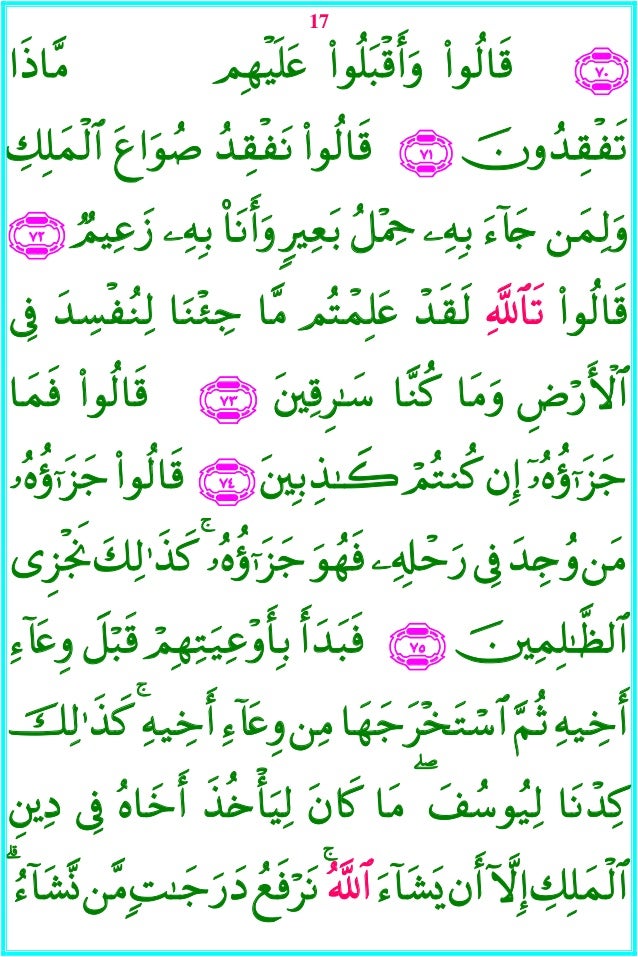 17
٧٠ قَالُوا۟ وَأَقْبَلُوا۟ عَلَيْهِم مَّاذَا
تَفْقِدُونَ ٧١ قَالُوا۟ نَفْقِدُ صُوَاعَ ٱلْمَلِكِ
وَلِمَن جَآءَ بِهِۦ حِمْلُ بَعِيرٍ وَأَنَا۠ بِهِۦ زَعِيمٌ ٧٢
قَالُوا۟ تَٱللَّهِ لَقَدْ عَلِمْتُم مَّا جِئْنَا لِنُفْسِدَ فِى
ٱلْأَرْضِ وَمَا كُنَّا سَـٰرِقِينَ ٧٣ قَالُوا۟ فَمَا
جَزَٰٓؤُهُۥٓ إِن كُنتُمْ كَـٰذِبِينَ ٧٤ قَالُوا۟ جَزَٰٓؤُهُۥ
مَن وُجِدَ فِى رَحْلِهِۦ فَهُوَ جَزَٰٓؤُهُۥ ۚ كَذَٰلِكَ نَجْزِى
ٱلظَّـٰلِمِينَ ٧٥ فَبَدَأَ بِأَوْعِيَتِهِمْ قَبْلَ وِعَآءِ
أَخِيهِ ثُمَّ ٱسْتَخْرَجَهَا مِن وِعَآءِ أَخِيهِ ۚ كَذَٰلِكَ
كِدْنَا لِيُوسُفَ ۖ مَا كَانَ لِيَأْخُذَ أَخَاهُ فِى دِينِ
ٱلْمَلِكِ إِلَّآ أَن يَشَآءَ ٱللَّهُ ۚ نَرْفَعُ دَرَجَـٰتٍ مَّن نَّشَآءُ ۗ